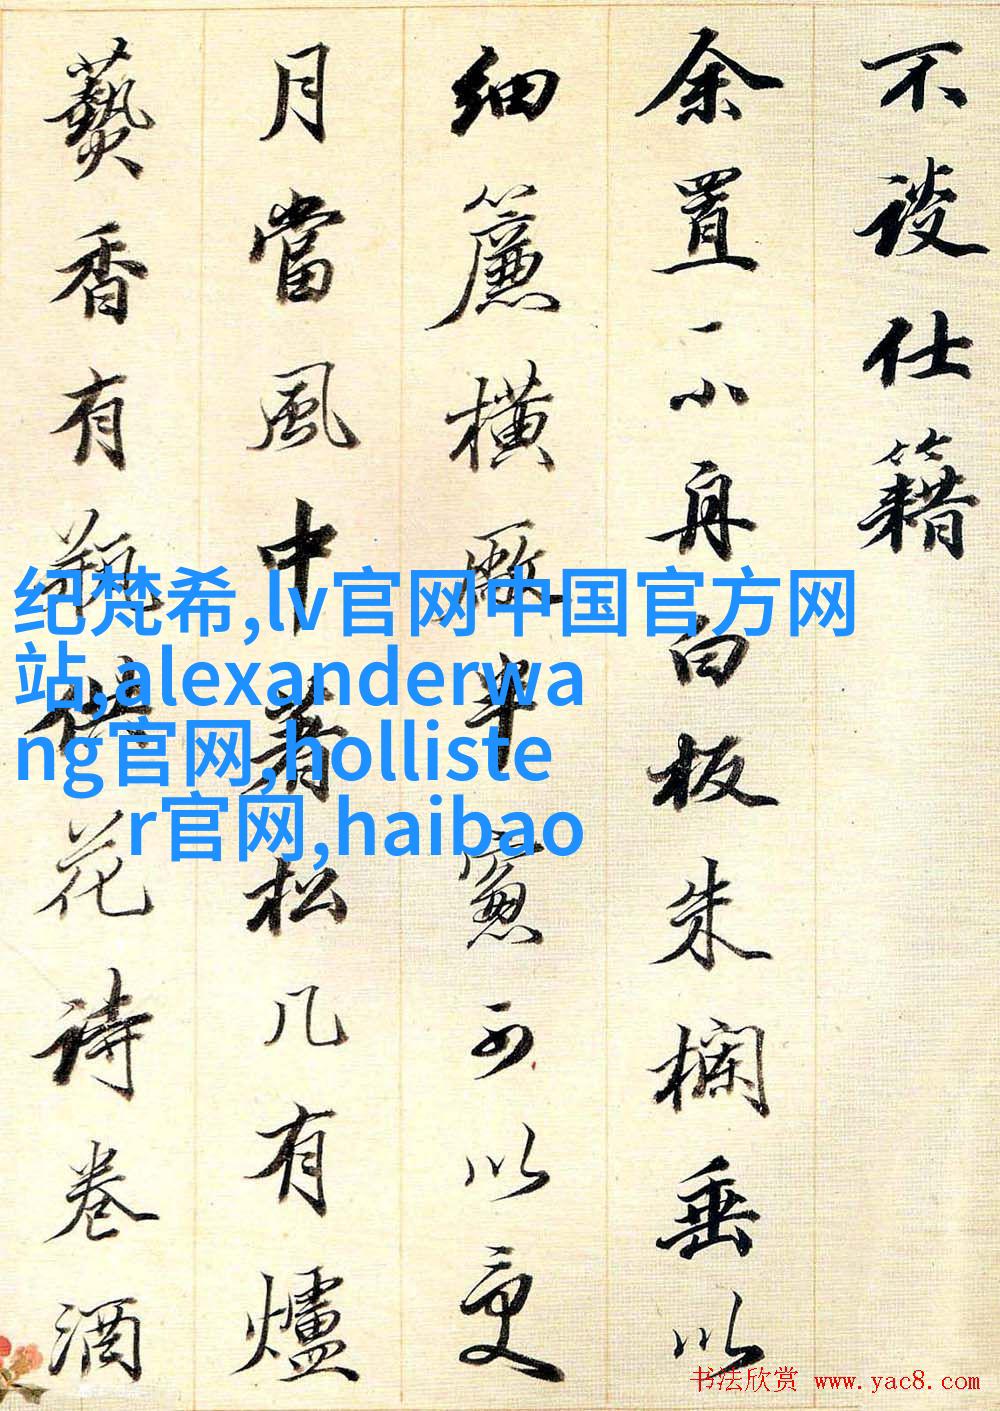 不談仕籍
余置一小舟白板朱欄垂以
細簾橫厰半窻可以受
月當風中著松几有爐
爇香有瓶供花詩卷酒
纪梵希,lv官网中国官方网
站,alexanderwa
ng官网,holliste
r官网,haibao
书法欣赏 www.yac8.com